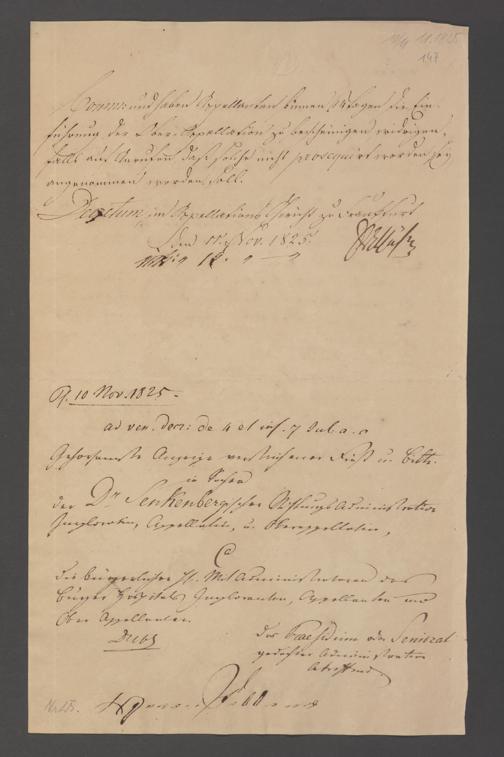 11/11 1825
147
Comm: und haben Appellanten binnen 8 Tagen die Ein-
führung der Ober-Appellation zu bescheinigen widrigen-
falls auf Anrufen daß solche nicht prosequirt worden sey
angenommen werden soll.
Decretum im Appellations Gericht zu Frankfurt
den 11. Nov. 1825.
12.
10 Nov. 1825.
ad ven. decr: de 4 et inf. 7 sub. a. o
Gehorsamste Anzeige verstrichener Frist u. Bitte
in Sachen
der Dr. Senkenbergischen Stiftungs Administration
Imploraten, Appellaten, u. Oberappellaten,
Ca
die bürgerlichen Mit Administratoren des
Bürger Hospitals Imploranten, Appellanten
Ober Appellanten.
das Praesidium oder Seniorat
gedachter Administration
betreffend